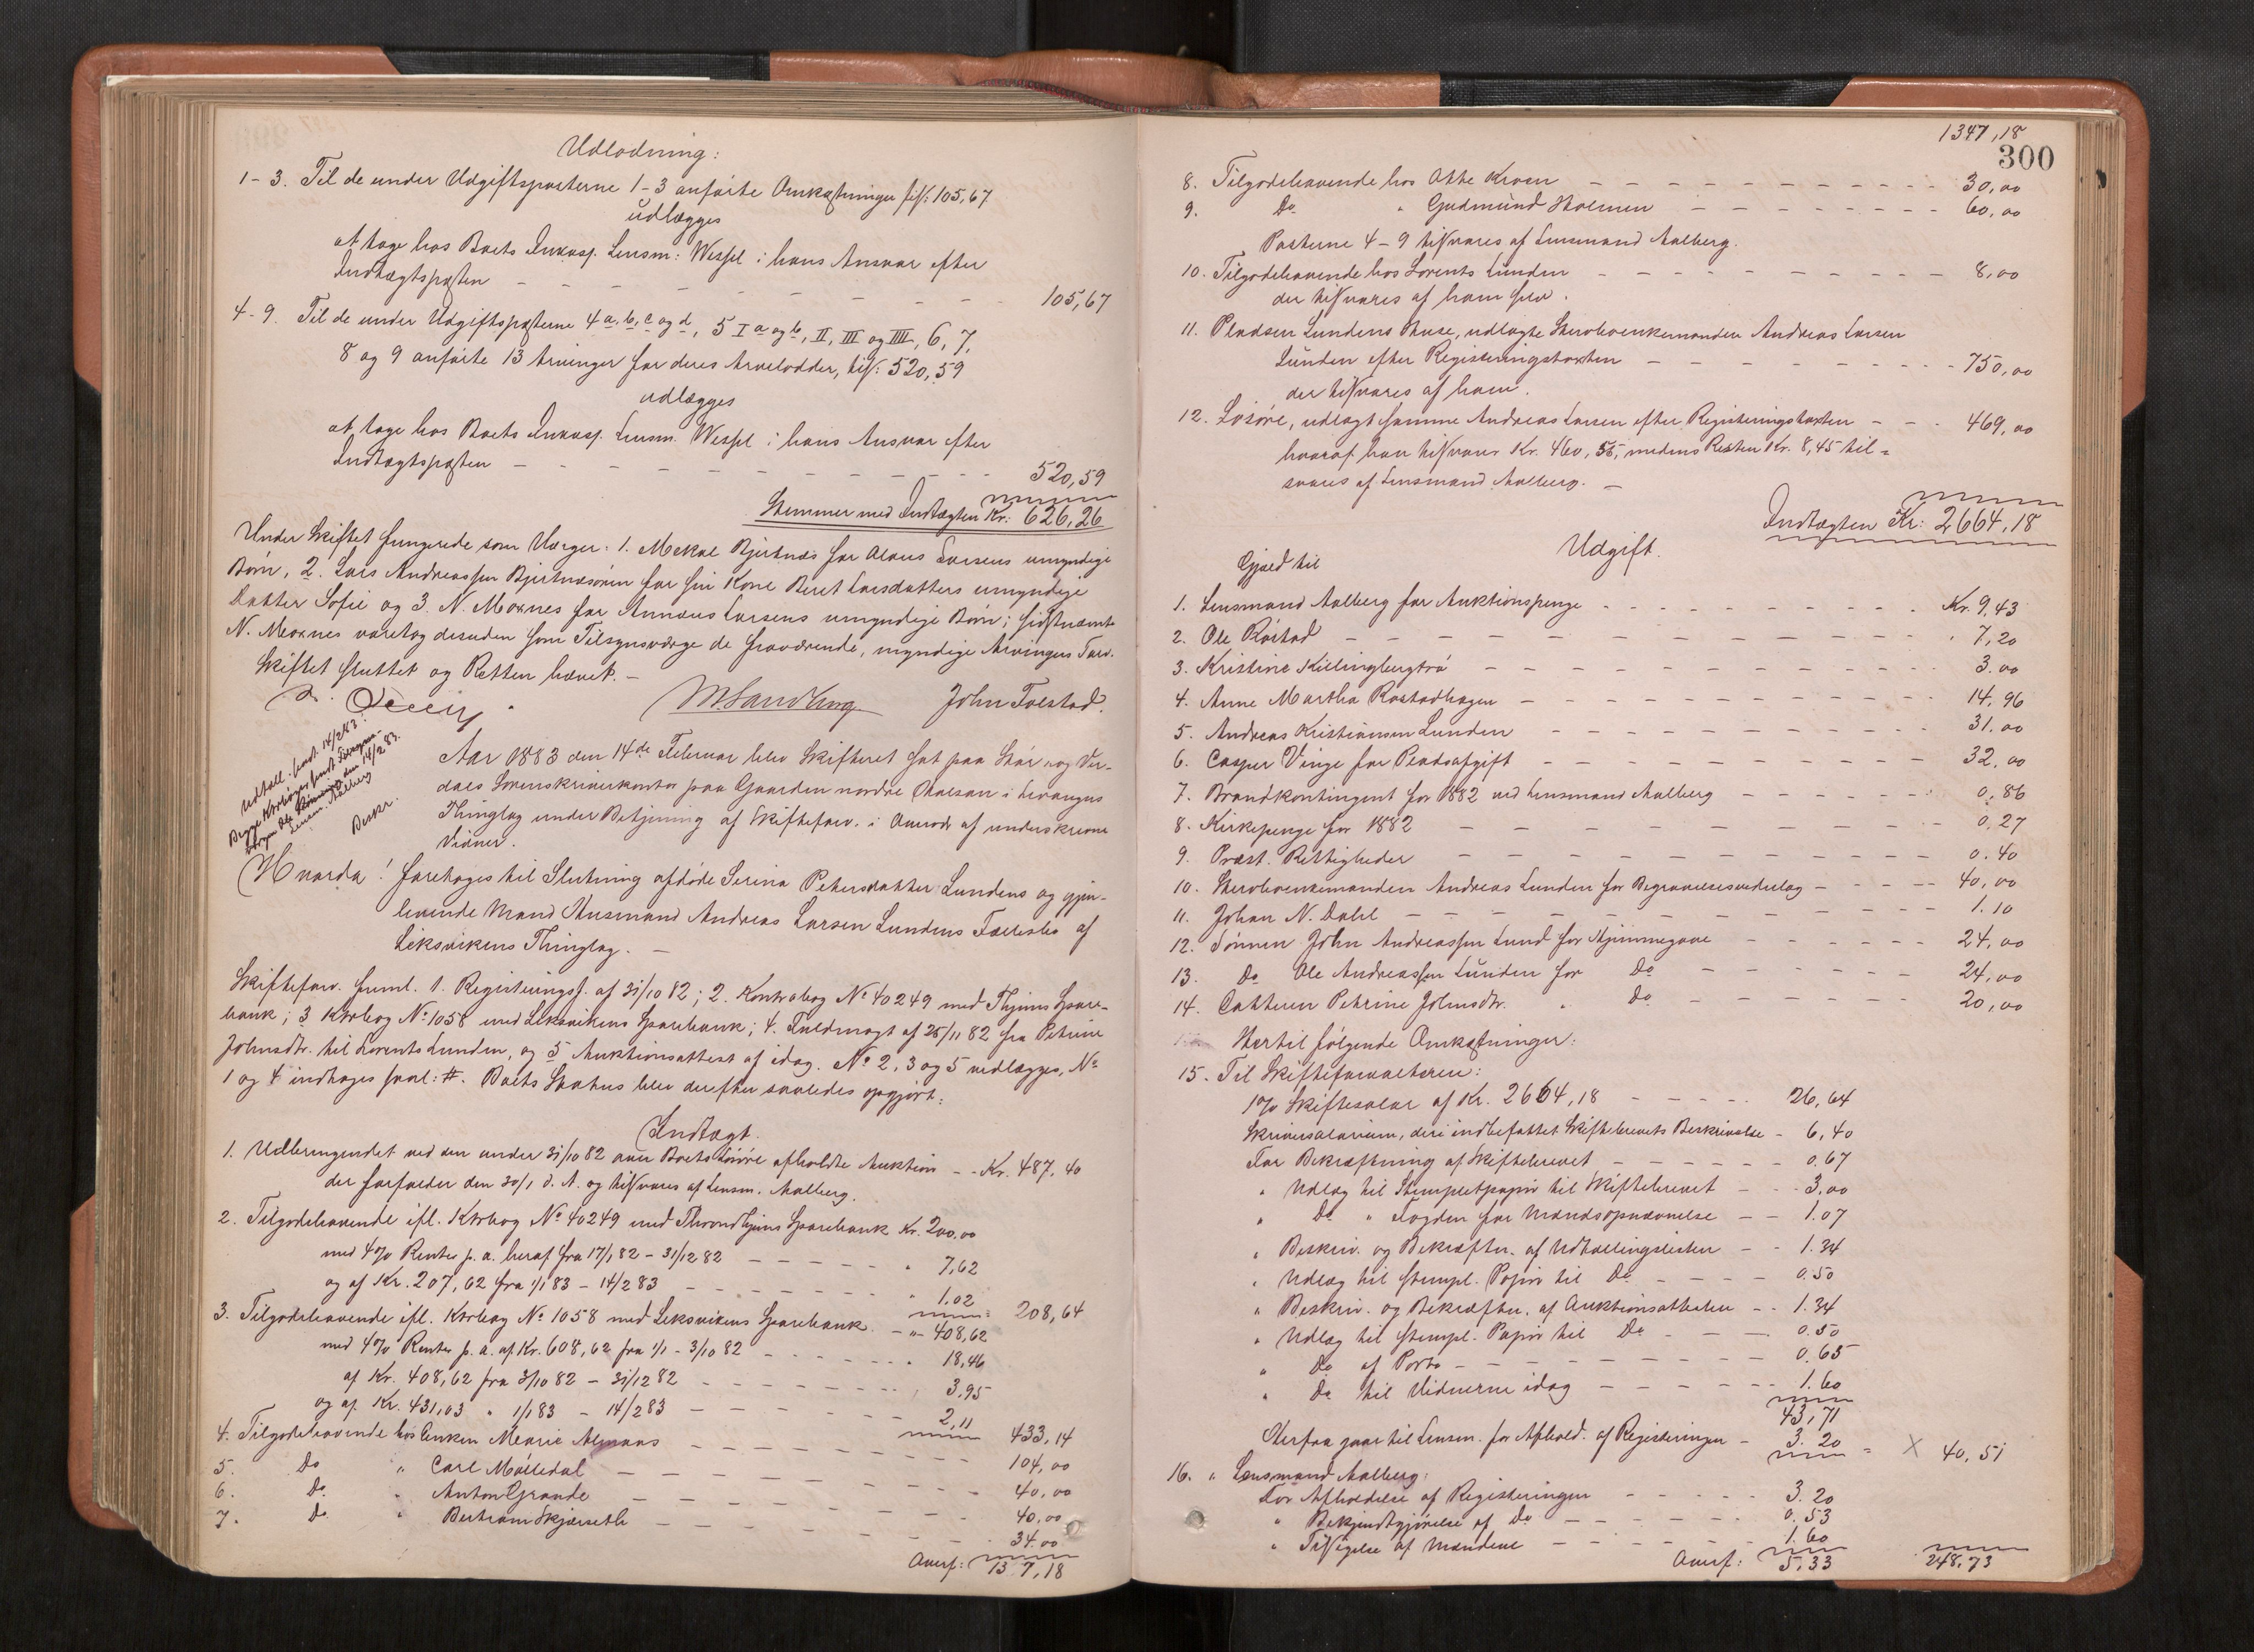 Udlodning:
1-3. Til de under Udgiftsposterne 1-3 anførte Omkostninger tils: 105,67
udlægges
at tage hos Boets Inkass. Lensm: Wessel i hans Ansvar efter
Indtægtsposten - - - 105,67
4-9. Til de under Udgiftsposterne 4 a, b, c og d, 5 I a og b, II, III og IIII, 6, 7,
8 og 9 anførte 13 Arvinger for deres Arvelodder, tils: 520,59
udlægges
at tage hos Boets Inkass. Lensm. Wessel i hans Ansvar efter
Indtægtsposten - - - 520,59
Stemmer med Indtægten Kr: 626,26
Under Skiftet fungerede som Værger: 1. Mekal Bjertnæs for Olaus Larsens umyndige
Børn, 2. Lars Andreassen Bjertnæsøren for sin Kone Beret Larsdatters umyndige
Datter Sofie og 3. N. Moxnes for Annæus Larsens umyndige Børn; sidstnævnte
N. Moxnes varetog desuden som Tilsynsværge de fraværende, myndige Arvingers Tarv.
Skiftet sluttet og Retten hævet. -
M. Sandling John Tolstad.
Udtall. send. 14/2 83.
Begge Kvrbøger sendt
den 14/2 83.
Lensm. Aalberg
Beskr.
Aar 1883 den 14de Februar blev Skifteret sat paa Stør- og Vær-
dals Sorenskriverkontor paa Gaarden nordre Halsan i Levangers
Thinglag under Betjening af Skifteforv. i Overvær af underskrevne
Vidner.
Hvorda! foretoges til Slutning afdøde Serina Petersdatter Lundens og gjen-
levende Mand Husmand Andreas Larsen Lundens Fællesbo af
Leksvikens Thinglag. -
Skifteforv. freml. 1. Registeringsf. af 31/10 82; 2. Kontrabog No 40249 med Thjems Spare-
bank; 3 Ktrbog No 1058 med Leksvikens Sparebank; 4. Fuldmagt af 25/11 82 fra Petrine
Johnsdtr. til Lorents Lunden, og 5 Auktionsattest af idag. No 2, 3 og 5 vedlægges, No
1 og 4 indtages saal: #. Boets Status blev derefter saaledes opgjort:
Indtægt.
1. Udbringendet ved den under 31/10 82 over Boets Løsøre afholdte Auktion - - Kr. 487,40
der forfalder den 30/1 d. A. og tilsvares af Lensm. Aalberg.
2. Tilgodehavende ifl. Ktrbog No 40249 med Throndhjems Sparebank Kr. 200,00
med 4% Renter p. a. heraf fra 17/1 82 - 31/12 82 - - - " 7,62
og af Kr. 207,62 fra 1/1 83 - 14/2 83 - - - " 1.02 = 208,64
3. Tilgodehavende ifl. Ktrbog No 1058 med Leksvikens Sparebank - " 408,62
med 4% Renter p. a. af Kr. 608,62 fra 1/1 - 3/10 82 - - - " 18,46
af Kr. 408,62 fra 3/10 82 - 31/12 82 - - - 3,95
og af Kr. 431,03 " 1/1 83 - 14/2 83 - - - 2,11 433,14
4. Tilgodehavende hos Enken Marie Almaas - - - 104,00
5. Do " Carl Mølledal - - - 40,00
6. Do " Anton Grande - - - 40,00
7. Do " Bertram Skjærseth - - - 34.00
Overf: 13 7,18
1347,18
300
8. Tilgodehavende hos Otte Kroen - - - 30,00
9. Do " Gudmund Holmen - - - 60,00
Posterne 4-9 tilsvares af Lensmand Aalberg.
10. Tilgodehavende hos Lorents Lunden - - - 8,00
der tilsvares af ham selv.
11. Pladsen Lundens Huse, udlagte Stervboenkemanden Andreas Larsen
Lunden efter Registeringstaxten - - - 750,00
der tilsvares af ham.
12. Løsøre, udlagt samme Andreas Larsen efter Registeringstaxten - - 469,00
hvoraf han tilsvarer Kr. 460,55, medens Resten Kr. 8,45 til-
svares af Lensmand Aalberg. -
Indtægten Kr: 2664,18
Udgift.
Gjæld til
1. Lensmand Aalberg for Auktionspenge - - - Kr. 9,43
2. Ole Røstad - - - " 7,20
3. Kristine Killingbergtrø - - - 3.00
4. Anne Martha Rostadhagen - - - 14,96
5. Andreas Kristiansen Lunden - - - 31.00
6. Casper Vinge for Pladsafgift - - - 32,00
7. Brandkontingent for 1882 ved Lensmand Aalberg - - - 0,86
8. Kirkepenge for 1882 - - - 0,27
9. Præst. Rettigheder - - - 0.40
10. Stervboenkemanden Andreas Lunden for Begravelsesvederlag - - - 40,00
11. Johan N. Dahl - - - 1.10
12. Sønnen John Andreassen Lund for Hjemmegave - - - 24,00
13. Do Ole Andreassen Lunden for Do - - - 24,00
14. Datteren Petrine Johnsdtr. " Do - - - 20,00
Hertil følgende Omkostninger:
15. Til Skifteforvalteren:
1% Skiftesalær af Kr. 2664,18 - - - 26,64
Skriversalarium, deri indbefattet Skiftebrevets Beskrivelse - 6,40
For Bekræftning af Skiftebrevet - - - 0.67
" Udlæg til Stempletpapir til Skiftebrevet - - - 3,00
" Do " Fogden for Mændsopnævnelse - - 1.07
" Beskriv. og Bekræftn. af Udtællingslisten - - 1.34
" Udlæg til stempl. Papir til Do - - - 0.50
" Beskriv. og Bekræftn. af Auktionsattesten - - 1.34
" Udlæg til stempl. Papir til Do - - - 0.50
" Do af Porto - - - 0.65
" Do til Vidnerne idag - - - 1.60
43,71
Herfra gaar til Lensm. for Afhold. af Registeringen - 3.20 = X 40,51
16. " Lensmand Aalberg:
For Afholdelse af Registeringen - - - 3.20
" Bekjendtgjørelse af Do - - - 0.53
" Tilsigelse af Mændene - - - 1.60
Overf: 5.33 248,73